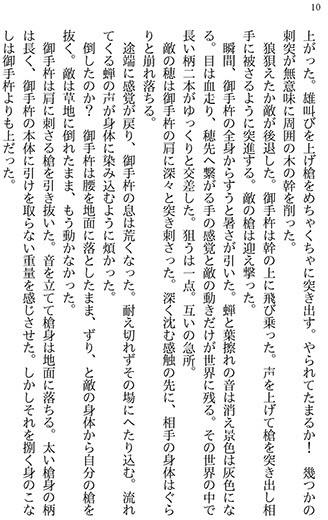 10
上がった。雄叫びを上げ槍をめちゃくちゃに突き出す。やられてたまるか！　幾つかの
刺突が無意味に周囲の木の幹を削った。
　狼狽えたか敵が後退した。御手杵は幹の上に飛び乗った。声を上げて槍を突き出し相
手に被さるように突進する。敵の槍は迎え撃った。
　瞬間、御手杵の全身からすうと暑さが引いた。蝉と葉擦れの音は消え景色は灰色にな
る。目は血走り、穂先へ繋がる手の感覚と敵の動きだけが世界に残る。その世界の中で
長い柄二本がゆっくりと交差した。狙うは一点。互いの急所。
　敵の穂は御手杵の肩に深々と突き刺さった。深く沈む感触の先に、相手の身体はぐら
りと崩れ落ちる。
　途端に感覚が戻り、御手杵の息は荒くなった。耐え切れずその場にへたり込む。流れ
てくる蝉の声が身体に染み込むように煩かった。
　倒したのか？　御手杵は腰を地面に落としたまま、ずり、と敵の身体から自分の槍を
抜く。敵は草地に倒れたまま、もう動かなかった。
　御手杵は肩に刺さる槍を引き抜いた。音を立てて槍身は地面に落ちる。太い槍身の柄
は長く、御手杵の本体に引けを取らない重量を感じさせた。しかしそれを捌く身のこな
しは御手杵よりも上だった。